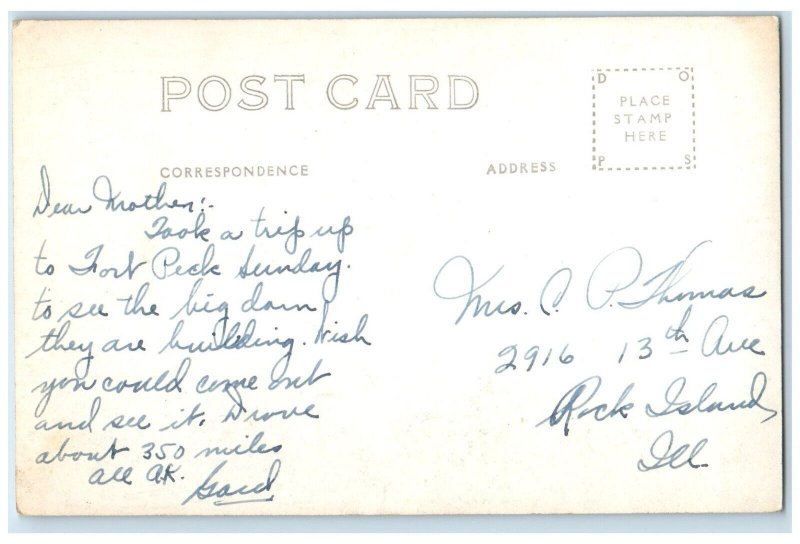 POST CARD
D O
PLACE
STAMP
HERE
P S
CORRESPONDENCE
ADDRESS
Dear Mother:-
Took a trip up
to Fort Peck Sunday.
to see the big dam
they are building. Wish
you could come out
and see it. Drove
about 350 miles
all OK.
Mrs. C. P. Thomas
2916 13th Ave
Rock Island,
Ill.